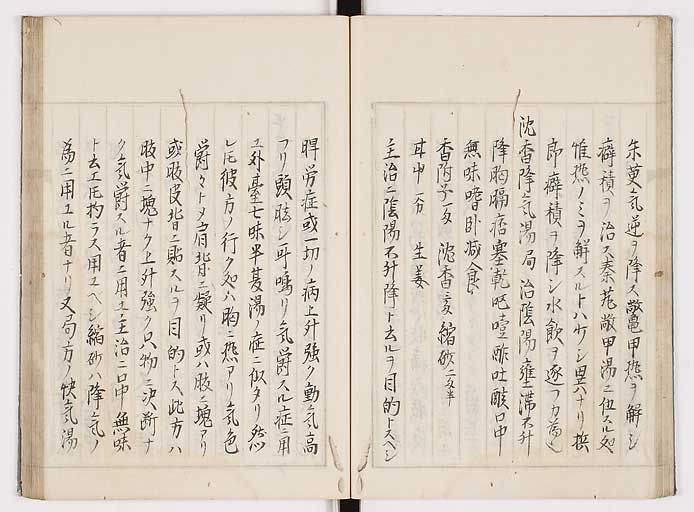 茱萸气逆ヲ降ス敝鼈甲热ヲ解シ
癖積ヲ治ス秦艽敝甲湯ニ伍スル処
惟热ノミヲ解スルトハ少シ異ハナリ挨
即癖積ヲ降シ水飲ヲ逐フカ為也
沈香降气湯局 治陰陽壅滞不升
降胸膈痞塞乾呕噎酢吐酸口中
無味嗜卧减食
香附子 沈香 縮砂
甘中一分 生姜
主治ニ陰陽不升降ト去ルヲ目的トスヘシ
脾労症或一切ノ病上升強ク動气高
フリ頭眩シ耳鳴リ气欝スル症ニ用
ユ外臺七味半夏湯ノ症ニ似タリ然
レモ彼方ノ行ク処ハ胸ニ热アリ气色
欝々トメ肩背ニ凝リ或ハ肢ニ塊アリ
或肢皮背ニ貼スルヲ目的トス此方ハ
肢中ニ塊ナク上升強ク只物ニ决断ナ
ク气欝スル者ニ用ユ主治ニ口中無味
ト云エモ拘ラス用ユヘシ縮砂ハ降气ノ
為ニ用ユル者ナリ又局方ノ快气湯